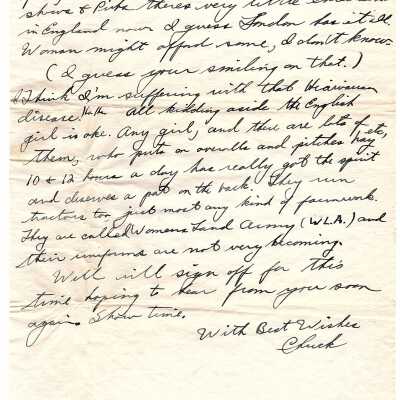 shows & Pubs theres very little
in England now I guess London has it all.
Woman might afford some, I don't know.
(I guess your smiling on that.)
I think I'm suffering with that
disease. Ha Ha All kidding aside the English
girl is oke. Any girl, and there are lots of etc,
them, who puts on overalls and pitches hay
10 & 12 hours a day has really got the spirit
and deserves a pat on the back. They run
tractors too, just most any kind of farmwork.
They are called Womens Land Army (W.L.A.) and
their uniforms are not very becoming.
Well will sign off for this
time hoping to hear from you soon
again. Show time.
With Best Wishes
Chuck